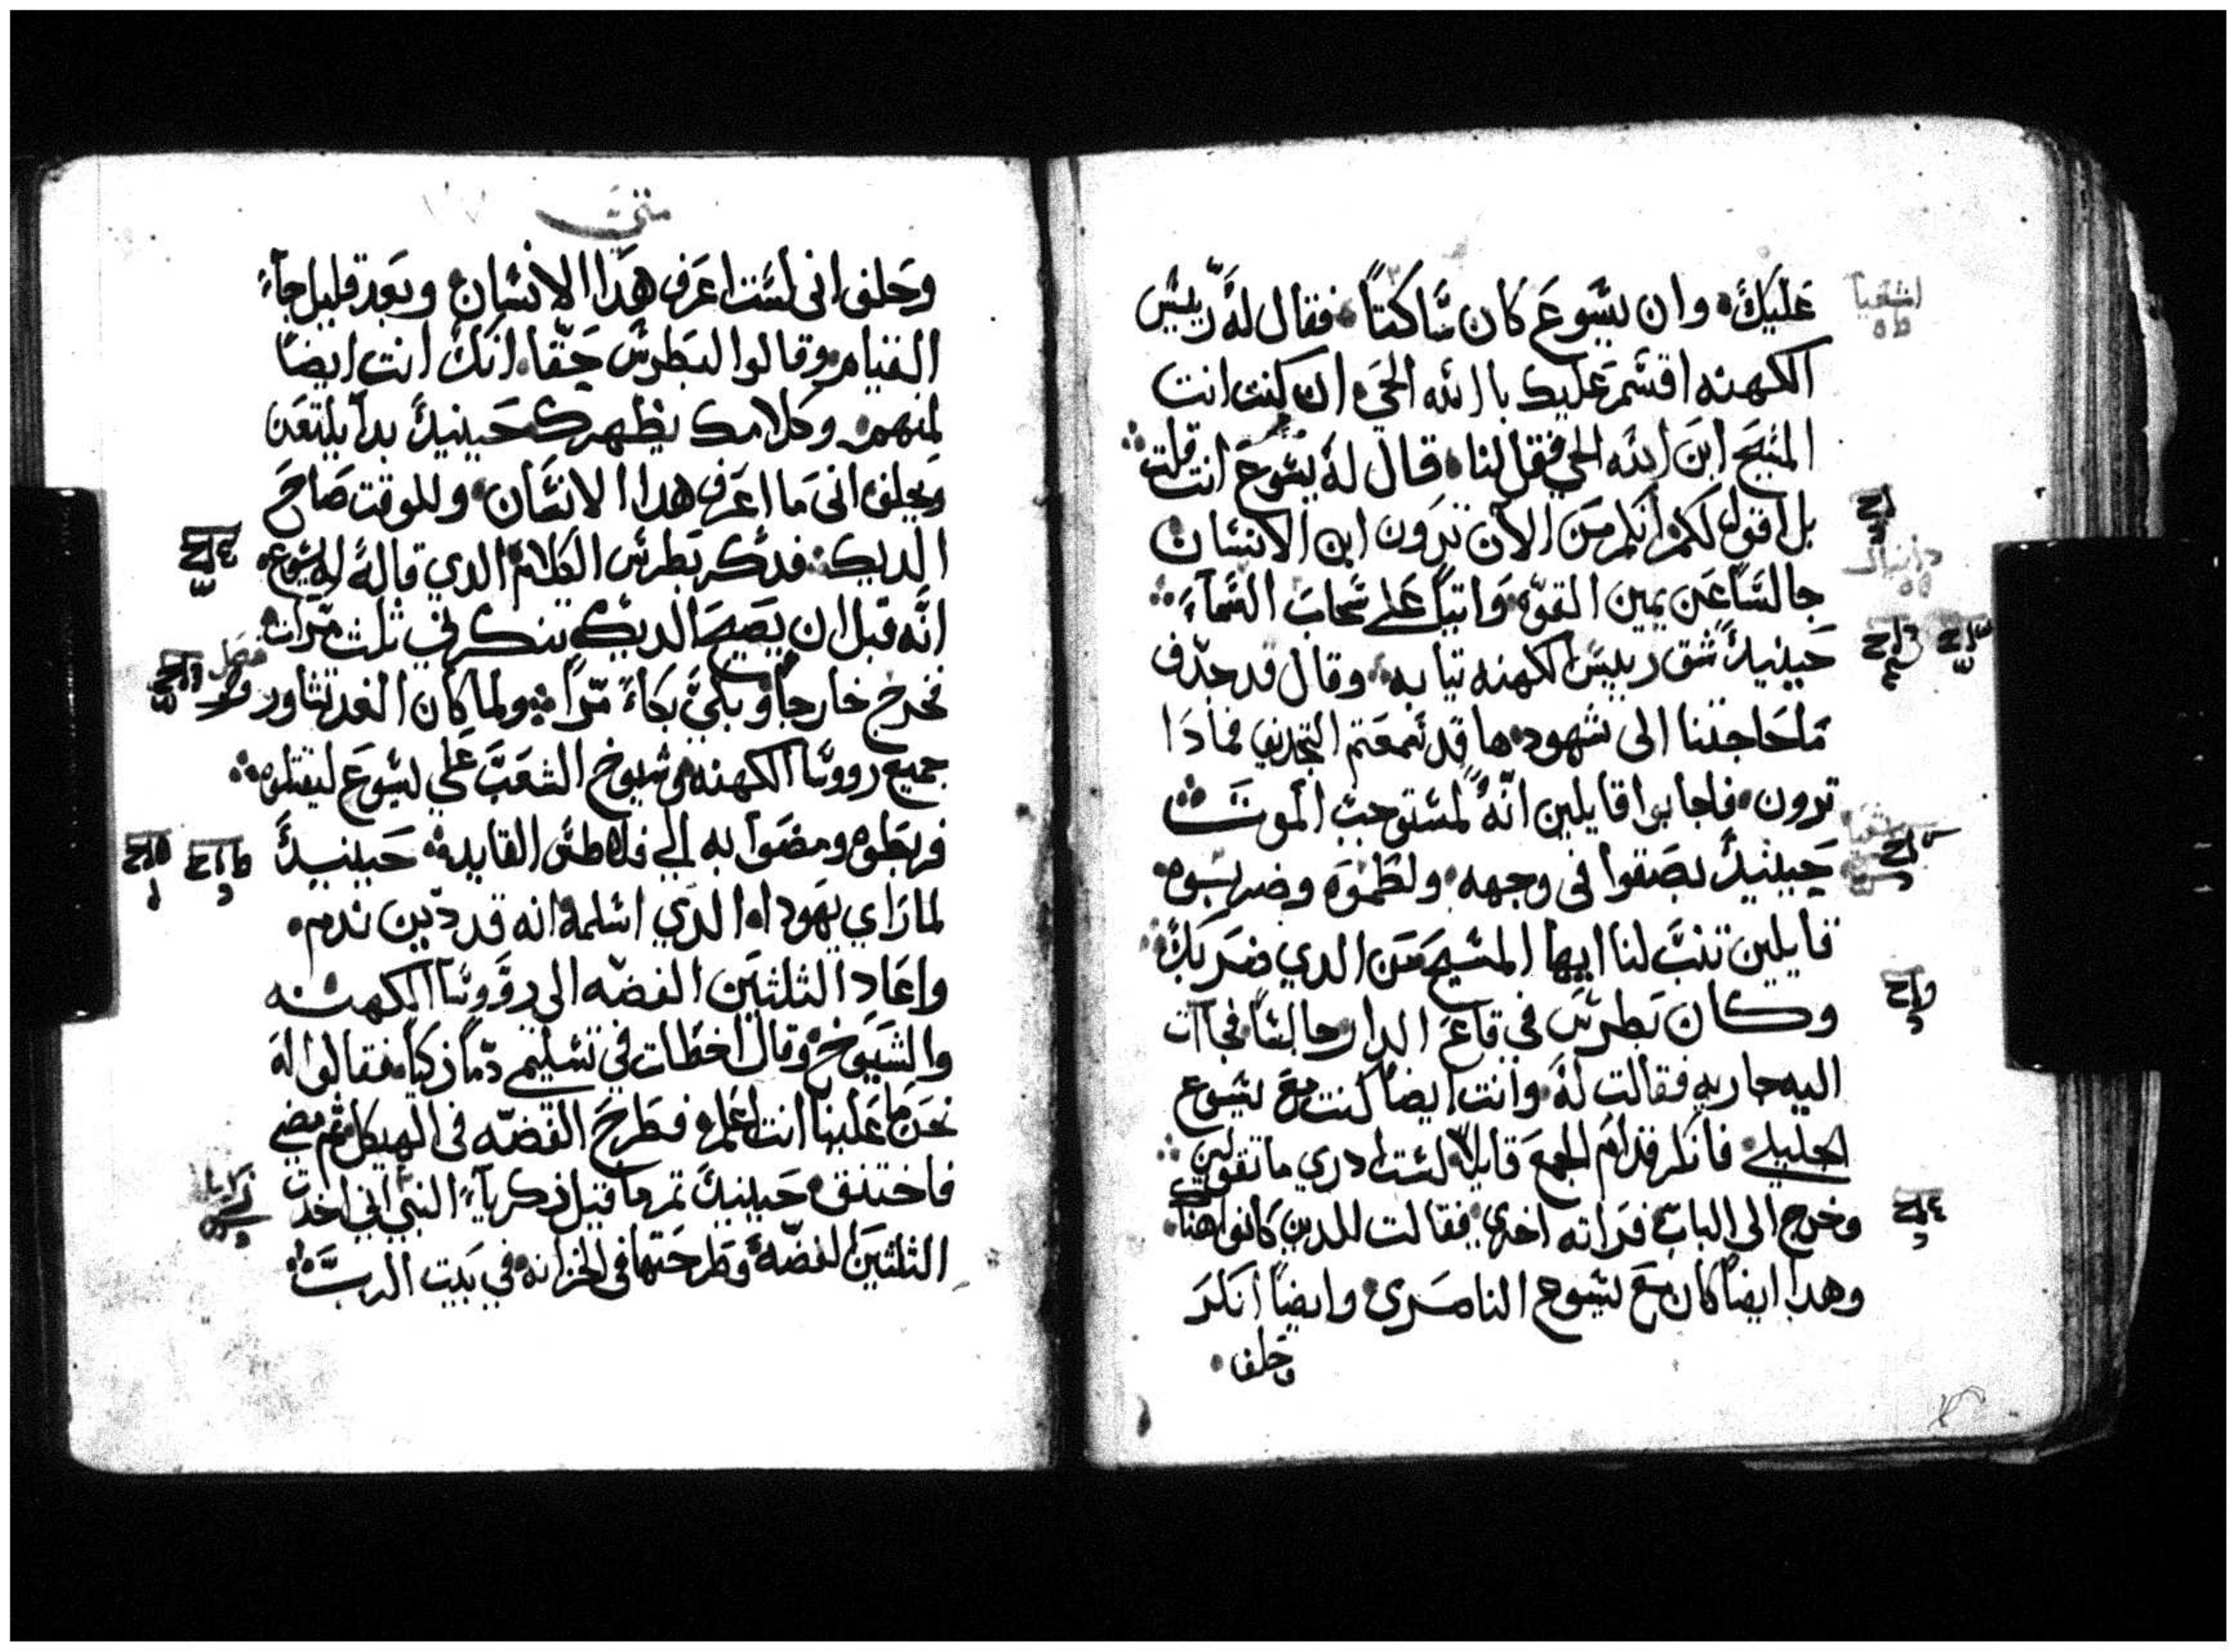 عليك وان يسوع كان ساكتاً فقال له رييس
الكهنه اقسم عليك با الله الحي ان كنت انت
المسيح ابن الله الحي فقل لنا قال له يسوع انت قلت
بل اقول لكم انكم من الان ترون ابن الانسان
جالساً عن يمين القوه واتياً على سحاب السماء
حينيدً شق رييس الكهنه تيابه وقال قد جدف
ما حاجتنا الى شهود ها قد سمعتم التجديف فمادا
ترون فاجابوا قايلين انه لمستوجب الموت
حينيدً بصقوا فى وجهه ولطموه وضربوه
قايلين تنبّ لنا ايها المسيح من الدي ضربك
وكان بطرس في قاعة الدار جالساً فجاات
اليه جاريه فقالت له وانت ايضاً كنت مع يسوع
الجليلي فانكر قدام الجمع قايلاً لست ادري ما تقولين
وخرج الى الباب فراته اخرى فقالت للدين كانوا هناك
وهدا ايضاً كان مع يسوع الناصري وايضاً انكر
وحلف
اشعيا
متى
وحلف انى لست اعرف هدا الانسان وبعد قليل جاء
القيام وقالوا لبطرس حقا انك انت ايضاً
لمنهم وكلامك يظهرك حينيدً بدا يلتعن
ويحلف انى ما اعرف هدا الانسان وللوقت صاح
الديك فدكر بطرس الكلام الدي قاله له يسوع
انه قبل ان يصيح الديك تنكرني ثلث مرات
فخرج خارجاً وبكى بكاءً مراً ولما كان الغد تشاور
جميع رووسا الكهنه وشيوخ الشعب على يسوع ليقتلوه
فربطوه ومضوا به الي فلاطس القايد حينيدً
لما راي يهودا الدي اسلمه انه قد دين ندم
واعاد الثلثين الفضه الى رووسا الكهنه
والشيوخ وقال اخطات في تسليمي دماً زكياً فقالوا له
نحن ما علينا انت اعلم فطرح الفضه فى الهيكل ثم مضي
فاختنق حينيدً تم ما قيل زكرياء النبي اني اخدت
الثلثين الفضه وطرحتها فى الخزانه في بيت الرب
فصل
زكريا